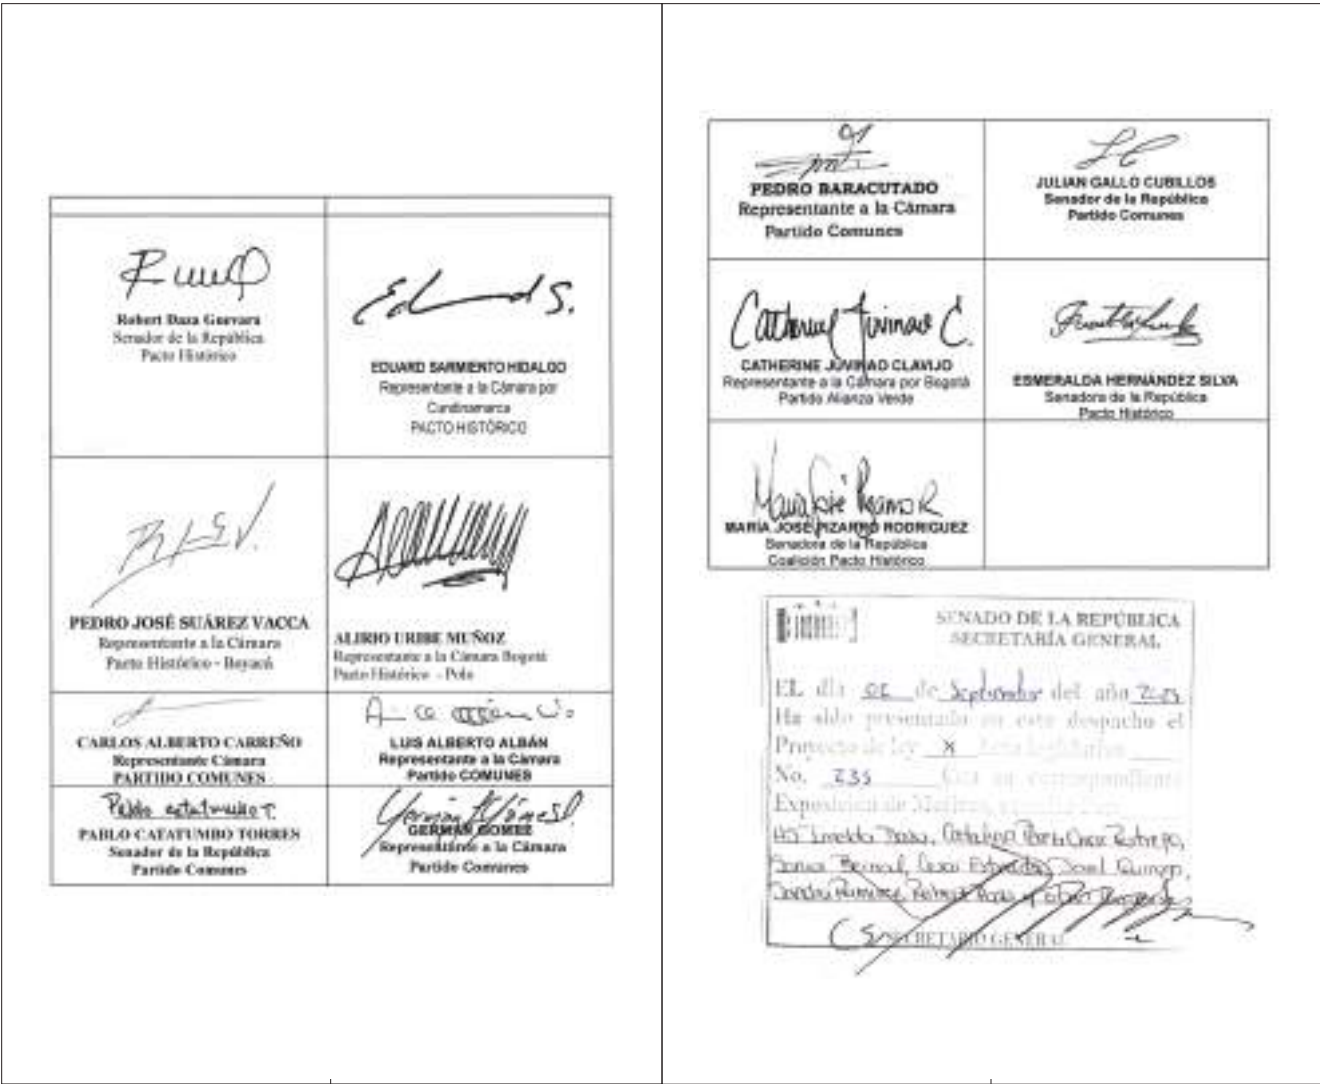 Robert Daza Guevara
Senador de la República
Pacto Histórico
Edu d S.
EDUARD SARMIENTO HIDALGO
Representante a la Cámara por
Cundinamarca
PACTO HISTÓRICO
PEDRO JOSÉ SUÁREZ VACCA
Representante a la Cámara
Pacto Histórico - Boyacá
ALIRIO URIBE MUÑOZ
Representante a la Cámara Bogotá
Pacto Histórico - Polo
CARLOS ALBERTO CARREÑO
Representante Cámara
PARTIDO COMUNES
LUIS ALBERTO ALBÁN
Representante a la Cámara
Partido COMUNES
Pablo Catatumbo T.
PABLO CATATUMBO TORRES
Senador de la República
Partido Comunes
Germán Gómez
GERMAN GOMEE
Representante a la Cámara
Partido Comunes
PEDRO BARACUTADO
Representante a la Cámara
Partido Comunes
JULIAN GALLO CUBILLOS
Senador de la República
Partido Comunes
Catherine Juvinao C.
CATHERINE JUVINAO CLAVIJO
Representante a la Cámara por Bogotá
Partido Alianza Verde
ESMERALDA HERNÁNDEZ SILVA
Senadora de la República
Pacto Histórico
María José Pizarro R
MARÍA JOSÉ PIZARRO RODRIGUEZ
Senadora de la República
Coalición Pacto Histórico
SENADO DE LA REPÚBLICA
SECRETARÍA GENERAL
EL día de Septiembre del año
Ha sido presentado en este despacho el
Proyecto de ley X Acto legislativo
No. 235 Con su correspondiente
Exposición de Motivos,
SECRETARIO GENERAL